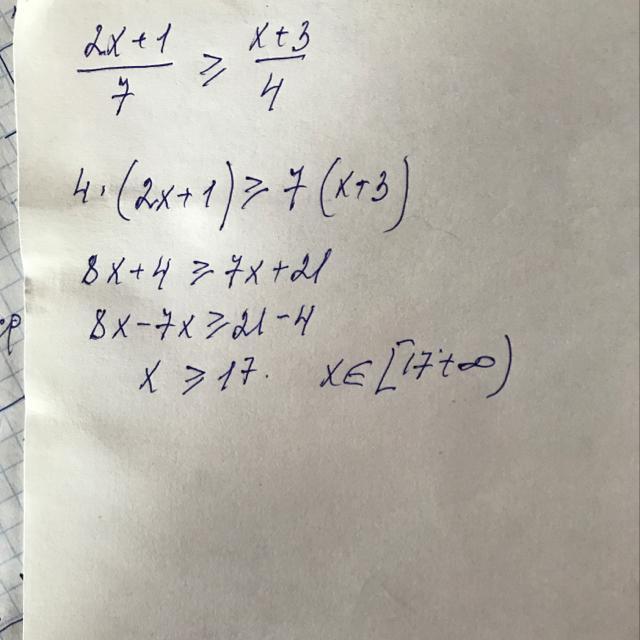 (2x+1)/7 ⩾ (x+3)/4
4·(2x+1)⩾7(x+3)
8x+4⩾7x+21
8x-7x⩾21-4
x⩾17. x∈[17+∞)